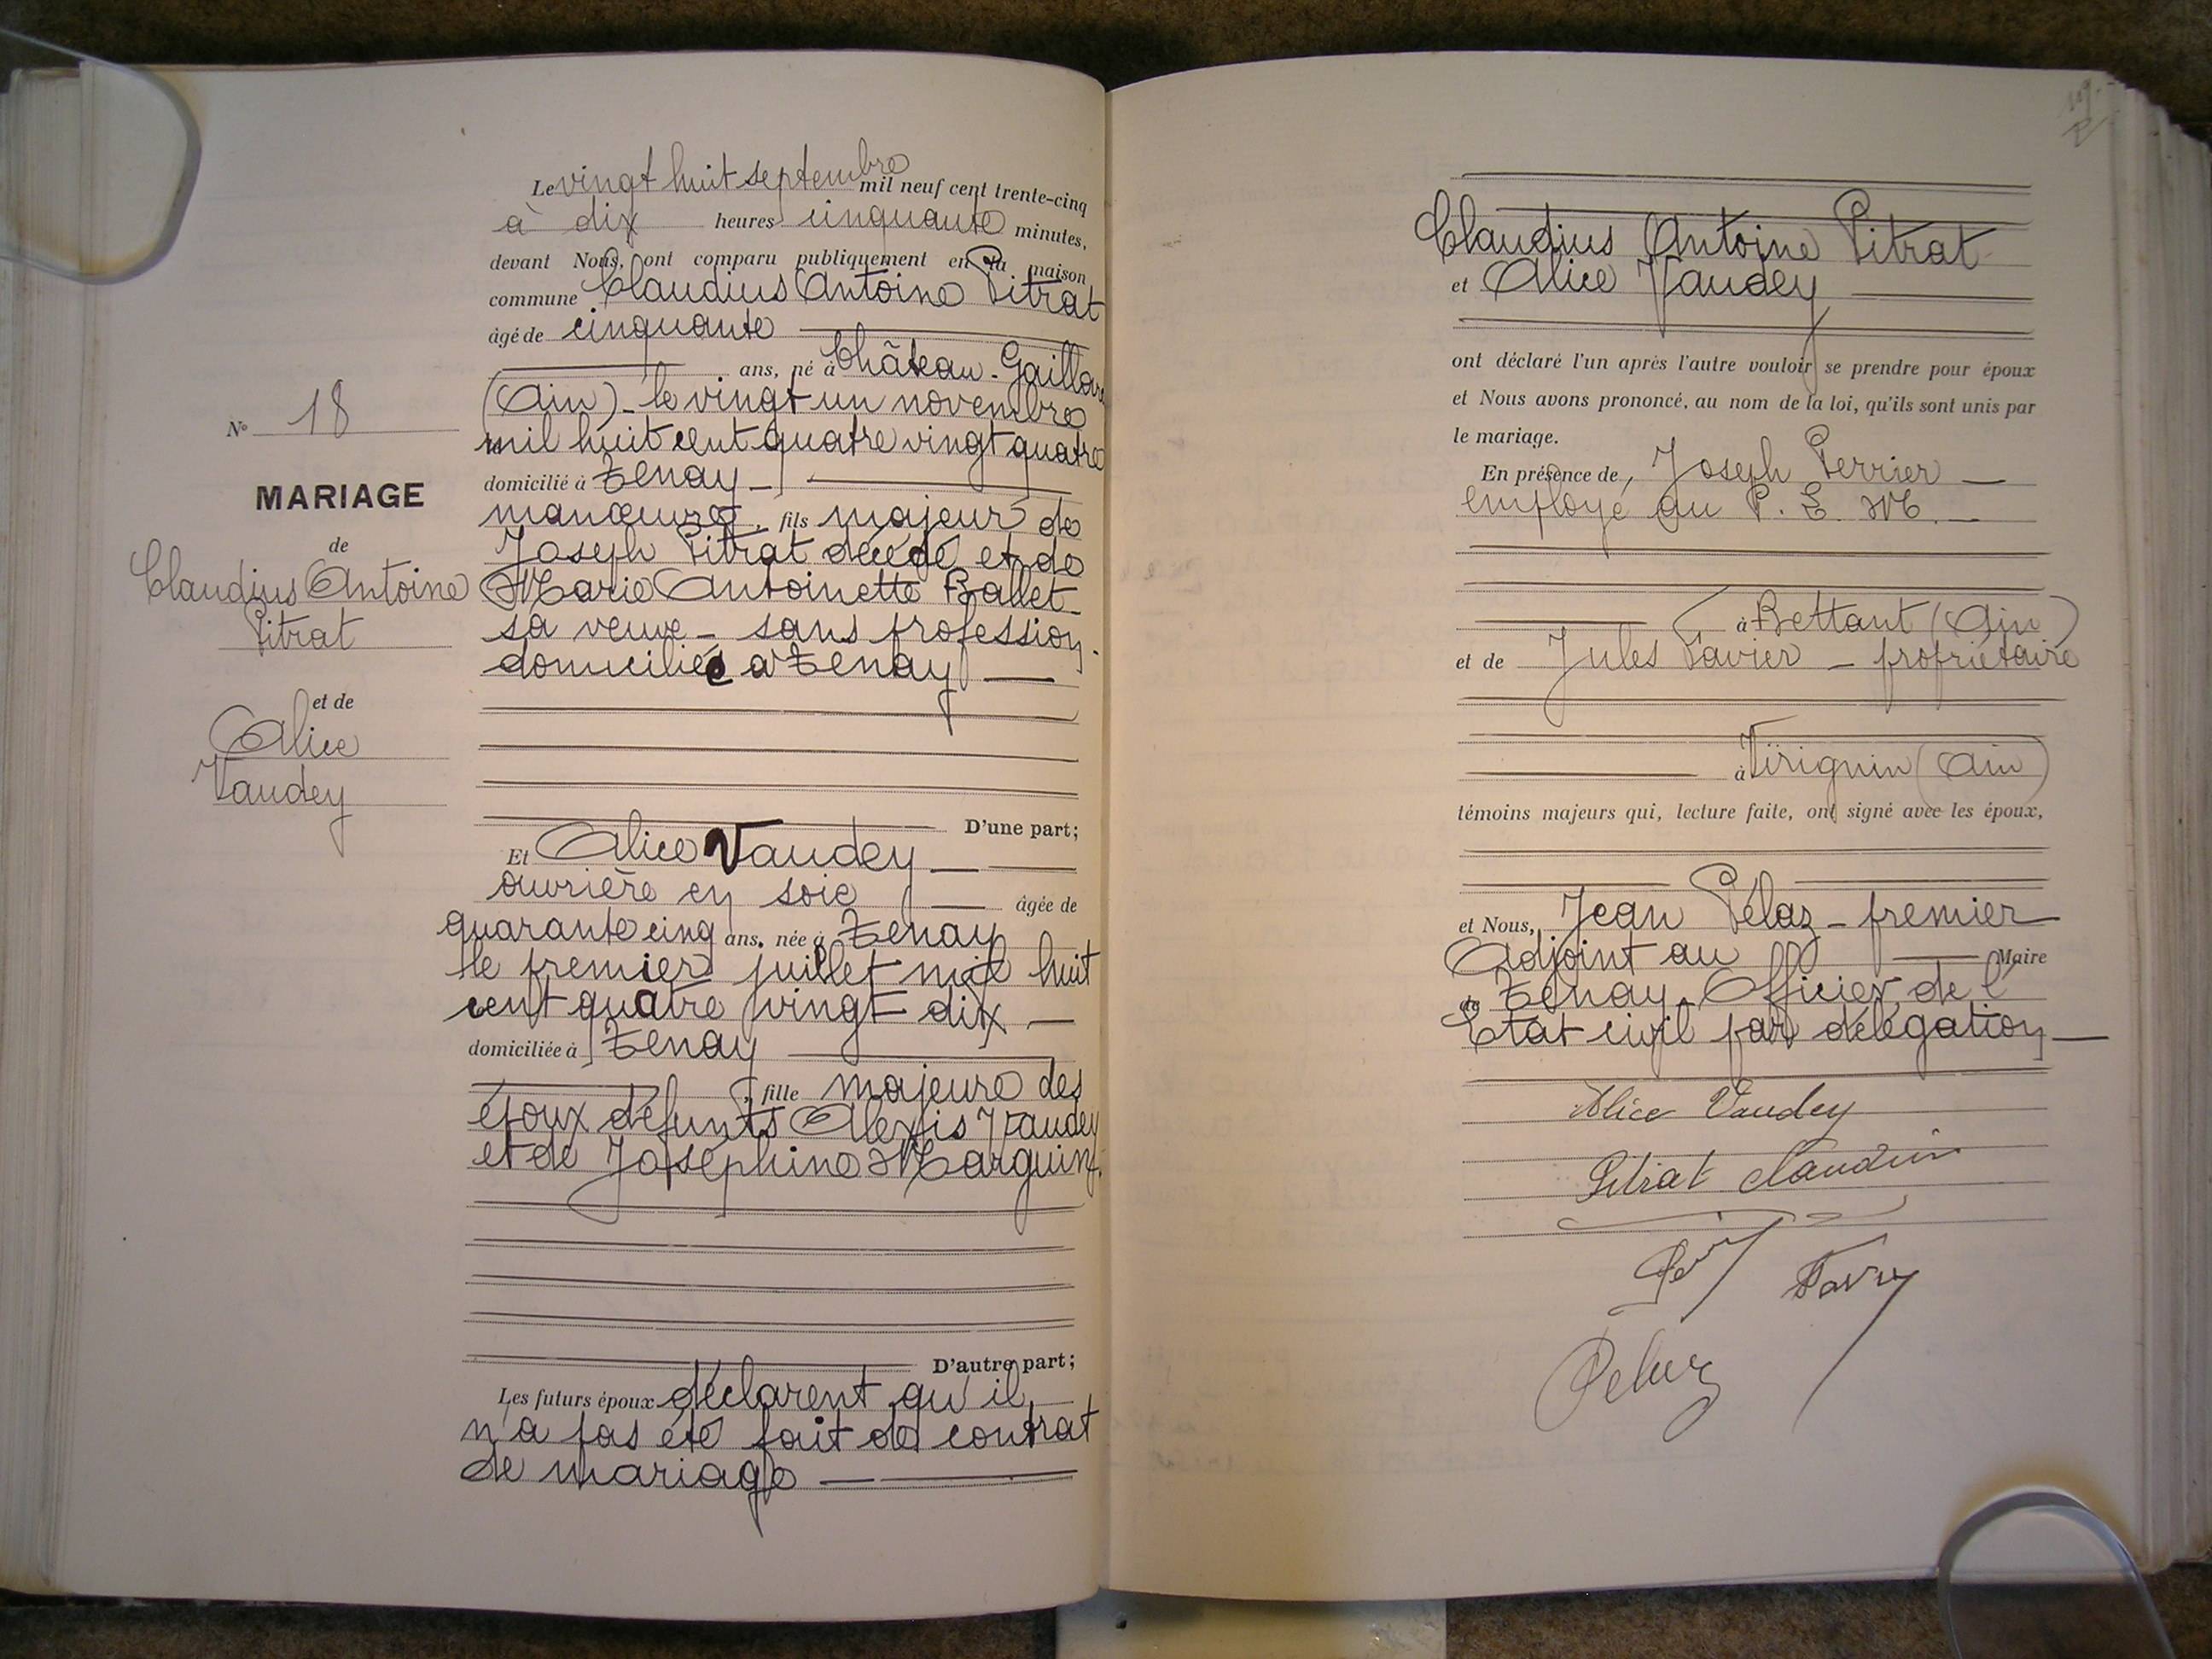 Le vingt huit septembre mil neuf cent trente-cinq
à dix heures cinquante minutes,
devant Nous, ont comparu publiquement en la maison
commune Claudius Antoine Pitrat
âgé de cinquante
ans, né à Château-Gaillard
(Ain) - le vingt un novembre
mil huit cent quatre vingt quatre
domicilié à Tenay -
manœuvre, fils majeur de
Joseph Pitrat décédé et de
Marie Antoinette Ballet
sa veuve - sans profession
domiciliée à Tenay
D'une part;
Et Alice Vaudey
ouvrière en soie âgée de
quarante cinq ans, née à Tenay
le premier juillet mil huit
cent quatre vingt dix
domiciliée à Tenay
, fille majeure des
époux défunts Alexis Vaudey
et de Joséphine Marguin
D'autre part;
Les futurs époux déclarent qu'il
n'a pas été fait de contrat
de mariage
N° 18
MARIAGE
de
Claudius Antoine
Pitrat
et de
Alice
Vaudey
Claudius Antoine Pitrat
et Alice Vaudey
ont déclaré l'un après l'autre vouloir se prendre pour époux
et Nous avons prononcé, au nom de la loi, qu'ils sont unis par
le mariage.
En présence de, Joseph Perrier
employé au P. L. M.
à Bettant (Ain)
et de Jules Pavier - propriétaire
à Virignin (Ain)
témoins majeurs qui, lecture faite, ont signé avec les époux,
et Nous, Jean Pélaz - premier
Adjoint au Maire
de Tenay. Officier de l'
Etat civil par délégation
Alice Vaudey
Pitrat Claudius